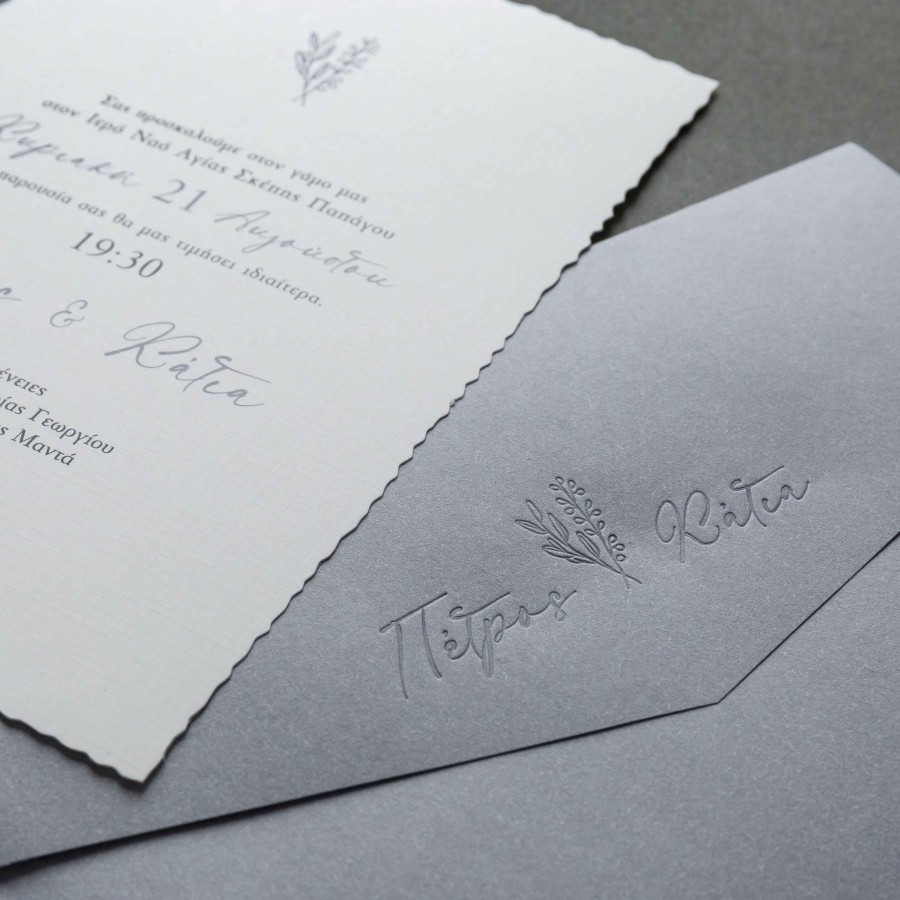 Σας προσκαλούμε στον γάμο μας
στον Ιερό Ναό Αγίας Σκέπης Παπάγου
Κυριακή 21 Αυγούστου
παρουσία σας θα μας τιμήσει ιδιαίτερα.
19:30
ς & Κάτια
Γεωργίου
Μαντά
Πέτρος Κάτια